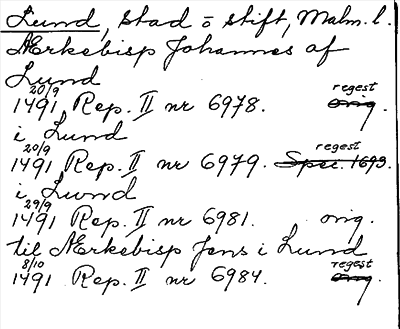 Lund, stad o stift, Malm. l.
Ærkebisp Johannes af
Lund
20/9 1491 Rep. II nr 6978. orig. regest
i Lund
20/9 1491 Rep. II nr 6979. Spec. 1693. regest
i Lund
29/9 1491 Rep. II nr 6981. orig.
til Ærkebisp Jens i Lund
8/10 1491 Rep. II nr 6984. orig. regest